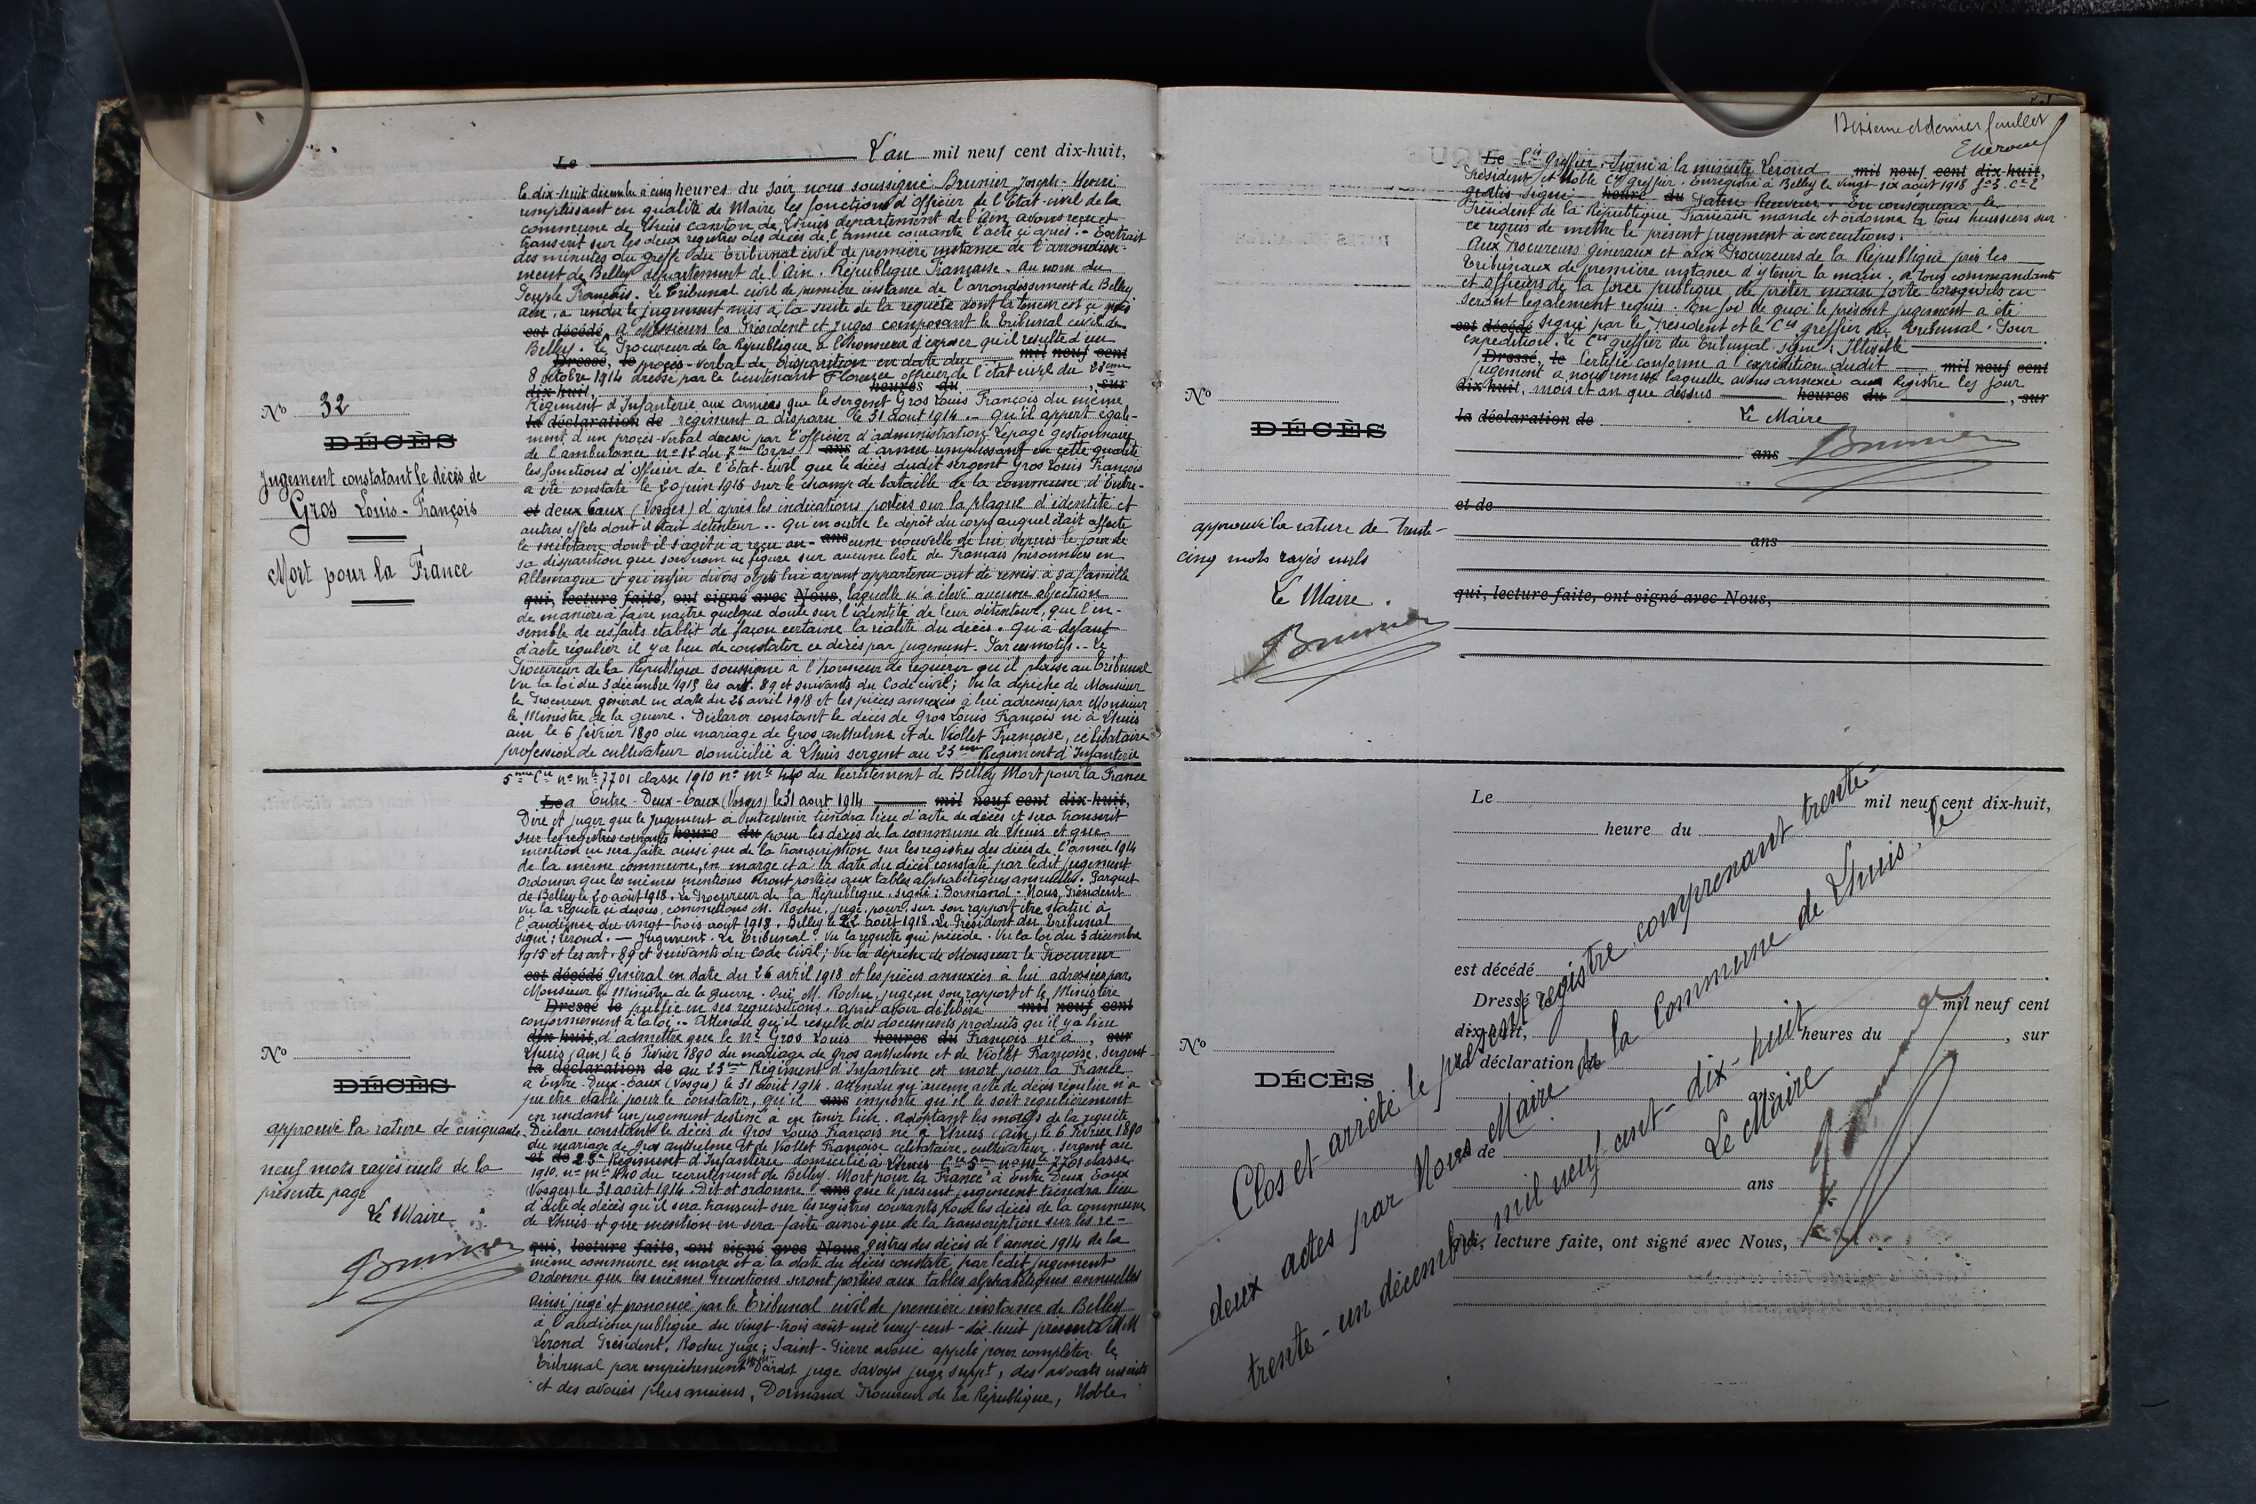 Le L'an mil neuf cent dix-huit,
le dix-huit décembre à cinq heures du soir nous soussigné Brunier Joseph-Henri
remplissant en qualité de Maire les fonctions d'officier de l'Etat-civil de la
commune de Lhuis canton de Lhuis département de l'Ain avons reçu et
transcrit sur les deux registres des décès de l'année courante l'acte ci après :- Extrait
des minutes du greffe du Tribunal civil de première instance de l'arrondisse-
ment de Belley département de l'Ain. République Française. Au nom du
Peuple Français. Le Tribunal civil de première instance de l'arrondissement de Belley
Ain, a rendu le jugement mis à la suite de la requête dont la teneur est ci après
est décédé A Messieurs les Président et Juges composant le Tribunal civil de
Belley. Le Procureur de la République a l'honneur d'exposer qu'il résulte d'un
Dressé, le procès-verbal de disparition en date du mil neuf cent
8 octobre 1914 dressé par le lieutenant Florence officier de l'état civil du 23ème
dix-huit, heures du , sur
Régiment d'Infanterie aux armées que le sergent Gros Louis François du même
la déclaration de régiment a disparu le 31 août 1914.- qu'il appert égale-
ment, d'un procès-verbal dressé par l'officier d'administration Lepage gestionnaire
de l'ambulance n° 12 du 7me Corps ans d'armée remplissant en cette qualité
les fonctions d'officier de l'Etat-civil que le décès dudit sergent Gros Louis François
a été constaté le 20 juin 1916 sur le champ de bataille de la commune d'Entre-
et deux Eaux (Vosges) d'après les indications portées sur la plaque d'identité et
autres effets dont il était détenteur.. Qu'en outre le dépôt du corps auquel était affecté
le militaire dont il s'agit n'a reçu au- ans cune nouvelle de lui depuis le jour de
sa disparition que son nom ne figure sur aucune liste de Français prisonniers en
Allemagne et qu'enfin divers objets lui ayant appartenu ont été remis à sa famille
qui, lecture faite, ont signé avec Nous, laquelle n'a élevé aucune objection
de manière à faire naître quelque doute sur l'identité de leur détenteur, que l'en-
semble de ces faits établit de façon certaine la réalité du décès. Qu'à défaut
d'acte régulier il y a lieu de constater ce décès par jugement. Par ces motifs.- Le
Procureur de la République soussigné a l'honneur de requérir qu'il plaise au Tribunal
Vu la loi du 3 décembre 1915 les art. 89 et suivants du Code civil; Vu la dépêche de Monsieur
le Procureur général en date du 26 avril 1918 et les pièces annexées à lui adressées par Monsieur
le Ministre de la guerre. Déclarer constant le décès de Gros Louis François né à Lhuis
Ain le 6 février 1890 du mariage de Gros Anthelme et de Viollet Françoise, célibataire
profession de cultivateur domicilié à Lhuis sergent au 23me Régiment d'Infanterie
5me Cie n° mle 7701 classe 1910 n° mle 440 du recrutement de Belley Mort pour la France
N° 32
DÉCÈS
Jugement constatant le décès de
Gros Louis-François
Mort pour la France
Le à Entre-Deux-Eaux (Vosges) le 31 août 1914 mil neuf cent dix-huit,
Dire et juger que le jugement à intervenir tiendra lieu d'acte de décès et sera transcrit
sur les registres courants heure du pour les décès de la commune de Lhuis et que
mention en sera faite ainsi que de la transcription sur les registres des décès de l'année 1914
de la même commune, en marge et à la date du décès constaté par ledit jugement
Ordonner que les mêmes mentions seront portées aux tables alphabétiques annuelles. Parquet
de Belley le 20 août 1918. Le Procureur de la République. signé : Dormand. Nous, Président
Vu la requête ci dessus, commettons M. Rochu, juge pour, sur son rapport être statué à
l'audience du vingt-trois août 1918. Belley le 22 août 1918. Le Président du Tribunal
signé : Lerond. — Jugement. Le Tribunal. Vu la requête qui précède. Vu la loi du 3 décembre
1915 et les art. 89 et suivants du Code Civil; Vu la dépêche de Monsieur le Procureur
est décédé général en date du 26 avril 1918 et les pièces annexées à lui adressées par
Monsieur le Ministre de la guerre. Ouï M. Rochu, juge en son rapport et le Ministère
Dressé le public en ses réquisitions. Après avoir délibéré mil neuf cent
conformément à la loi.. Attendu qu'il résulte des documents produits qu'il y a lieu
dix huit, d'admettre que le né Gros Louis heures du François né à , sur
Lhuis (Ain) le 6 Février 1890 du mariage de Gros Anthelme et de Viollet Françoise, sergent
la déclaration de au 23me Régiment d'Infanterie est mort pour la France
à Entre-Deux-Eaux (Vosges) le 31 août 1914. Attendu qu'aucun acte de décès régulier n'a
pu être établi pour le constater, qu'il ans importe qu'il le soit régulièrement
en rendant un jugement destiné à en tenir lieu. Adoptant les motifs de la requête
Déclare constant le décès de Gros Louis François né à Lhuis (Ain) le 6 Février 1890
du mariage de Gros Anthelme et de Viollet Françoise célibataire, cultivateur, sergent au
et de 23e Régiment d'Infanterie domicilié à Lhuis Cie 5me n° mle 7701 classe
1910 n° mle 440 du recrutement de Belley. Mort pour la France à Entre Deux Eaux
(Vosges) le 31 août 1914. Dit et ordonne ans que le présent jugement tiendra lieu
d'acte de décès qu'il sera transcrit sur les registres courants pour les décès de la commune
de Lhuis et que mention en sera faite ainsi que de la transcription sur les re-
qui, lecture faite, ont signé avec Nous gistres des décès de l'année 1914 de la
même commune en marge et à la date du décès constaté, par ledit jugement
Ordonne que les mêmes mentions seront portées aux tables alphabétiques annuelles
Ainsi jugé et prononcé par le Tribunal civil de première instance de Belley
à l'audience publique du vingt-trois août mil neuf-cent-dix-huit présents M.M
Lerond Président, Rochu juge; Saint-Pierre avoué appelé pour compléter le
Tribunal par empêchement de Pardot juge Savoye juge suppt, des avocats inscrits
et des avoués plus anciens, Dormand Procureur de la République, Noble
N°
DÉCÈS
approuvé la rature de cinquante-
neuf mots rayés nuls de la
présente page
Le Maire
Brunier
Dixième et dernier feuillet
Le Cis Greffier. Signé à la minute Lerond mil neuf cent dix-huit,
Président et Noble Cis greffier. Enregistré à Belley le vingt six août 1918
gratis signé heure du En conséquence le
Président de la République Française mande et ordonne à tous huissiers sur
ce requis de mettre le présent jugement à exécutions.
Aux Procureurs généraux et aux Procureurs de la République près les
Tribunaux de première instance d'y tenir la main. A tous commandants
et officiers de la force publique de prêter main forte lorsqu'ils en
seront légalement requis. En foi de quoi le présent jugement a été
est décédé signé par le Président et le Cis greffier du Tribunal. Pour
expédition. Le Cis greffier du Tribunal signé : Illisible
Dressé, le Certifié conforme à l'expédition dudit mil neuf cent
jugement à nous remise laquelle avons annexée au Registre les jour
dix huit, mois et an que dessus heures du , sur
la déclaration de Le Maire
ans Brunier
et de
ans
qui, lecture faite, ont signé avec Nous,
N°
DÉCÈS
approuvé la rature de trente-
cinq mots rayés nuls
Le Maire.
Brunier
Le mil neuf cent dix-huit,
heure du
est décédé
Dressé le mil neuf cent
dix-huit, heures du , sur
la déclaration de
ans
et de
ans
qui, lecture faite, ont signé avec Nous,
N°
DÉCÈS
Clos et arrêté le présent registre comprenant trente-
deux actes par Nous Maire de la Commune de Lhuis, le
trente-un décembre mil neuf-cent-dix-huit
Le Maire